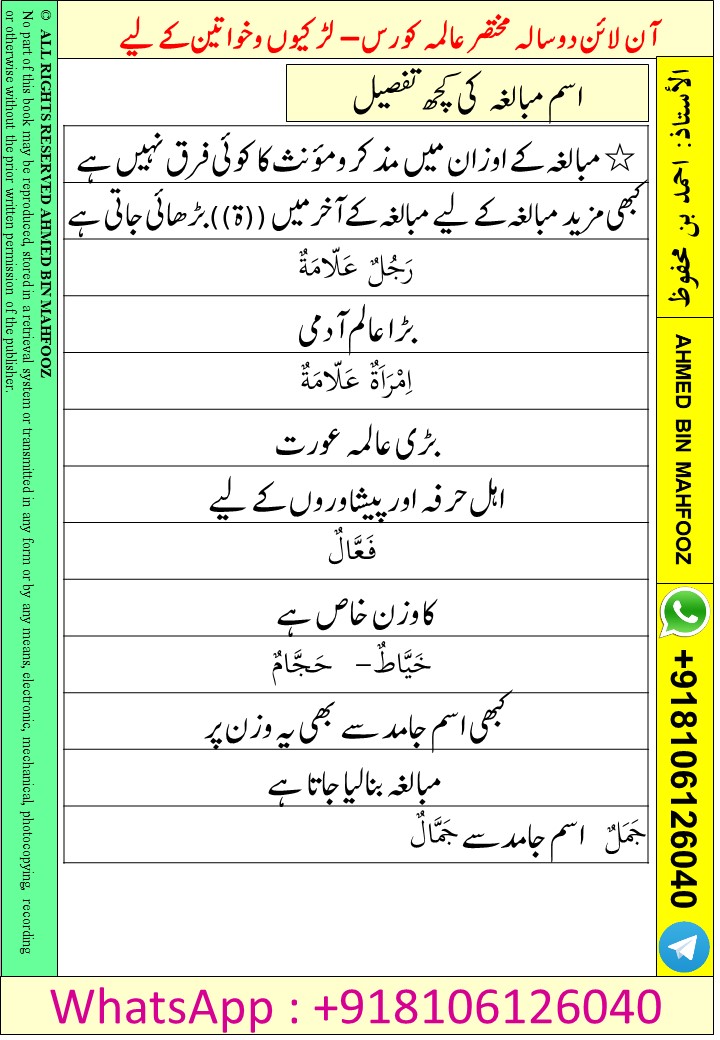 آن لائن دو سالہ مختصر عالمہ کورس – لڑکیوں و خواتین کے لیے
اسم مبالغہ کی کچھ تفصیل
☆ مبالغہ کے اوزان میں مذکر و مؤنث کا کوئی فرق نہیں ہے
کبھی مزید مبالغہ کے لیے مبالغہ کے آخر میں ((ة)) بڑھائی جاتی ہے
رَجُلٌ عَلّامَةٌ
بڑا عالم آدمی
اِمْرَاَةٌ عَلّامَةٌ
بڑی عالمہ عورت
اہل حرفہ اور پیشاوروں کے لیے
فَعَّالٌ
کا وزن خاص ہے
خَيَّاطٌ – حَجَّامٌ
کبھی اسم جامد سے بھی یہ وزن پر
مبالغہ بنا لیا جاتا ہے
جَمَلٌ اسم جامد سے جَمَّالٌ
الأستاذ: احمد بن محفوظ
AHMED BIN MAHFOOZ
+918106126040
© ALL RIGHTS RESERVED AHMED BIN MAHFOOZ
No part of this book may be reproduced, stored in a retrieval system or transmitted in any form or by any means, electronic, mechanical, photocopying, recording
or otherwise without the prior written permission of the publisher.
WhatsApp : +918106126040